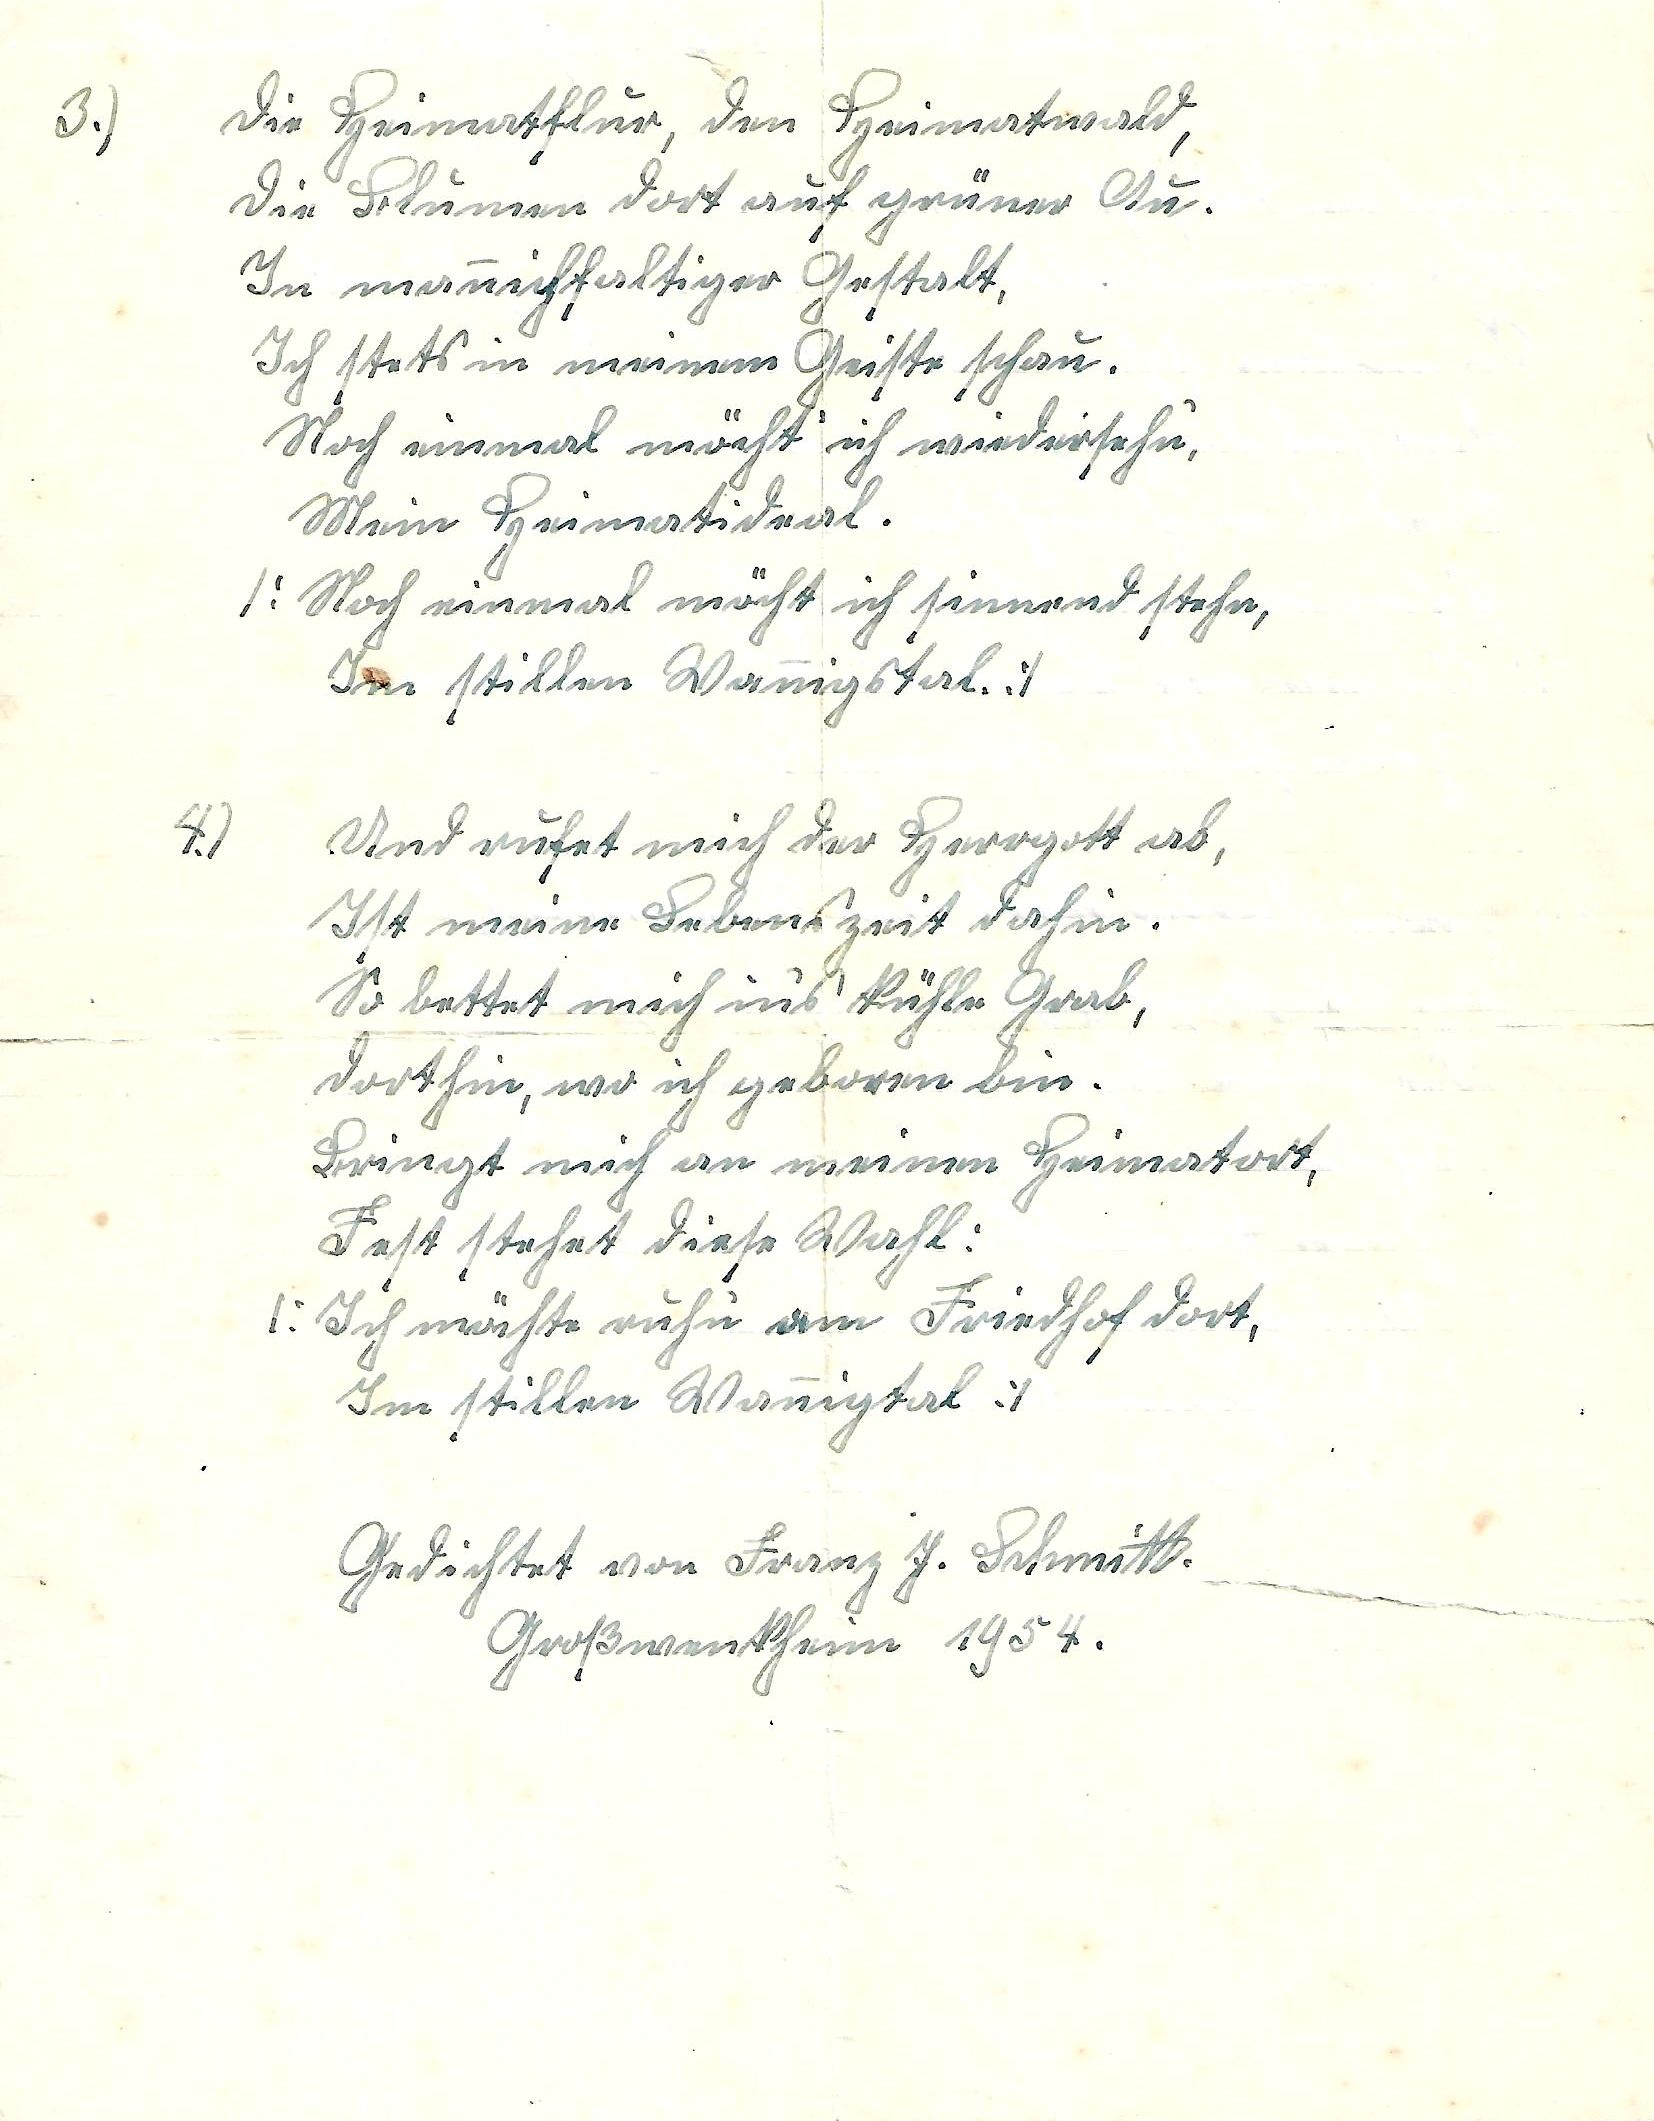 3.) Die Heimatflur, den Heimatwald,
Die Blumen dort auf grüner Au.
In mañichfaltiger Gestalt,
Ich stets in meinem Geiste schau.
Noch einmal möcht' ich wiedersehn,
Mein Heimatideal.
/: Noch einmal möcht ich sinnend stehn,
Im stillen Wan̄igstal. :/
4.) Und rufet mich der Herrgott ab,
Ist meine Lebenszeit dahin.
So bettet mich in's kühle Grab,
dorthin, wo ich geboren bin.
Bringt mich an meinen Heimatort,
Fest stehet diese Wahl:
/: Ich möchte ruhn am Friedhof dort,
Im stillen Wan̄igtal :/
Gedichtet von Franz J. Schmitt.
Großwenkheim 1954.